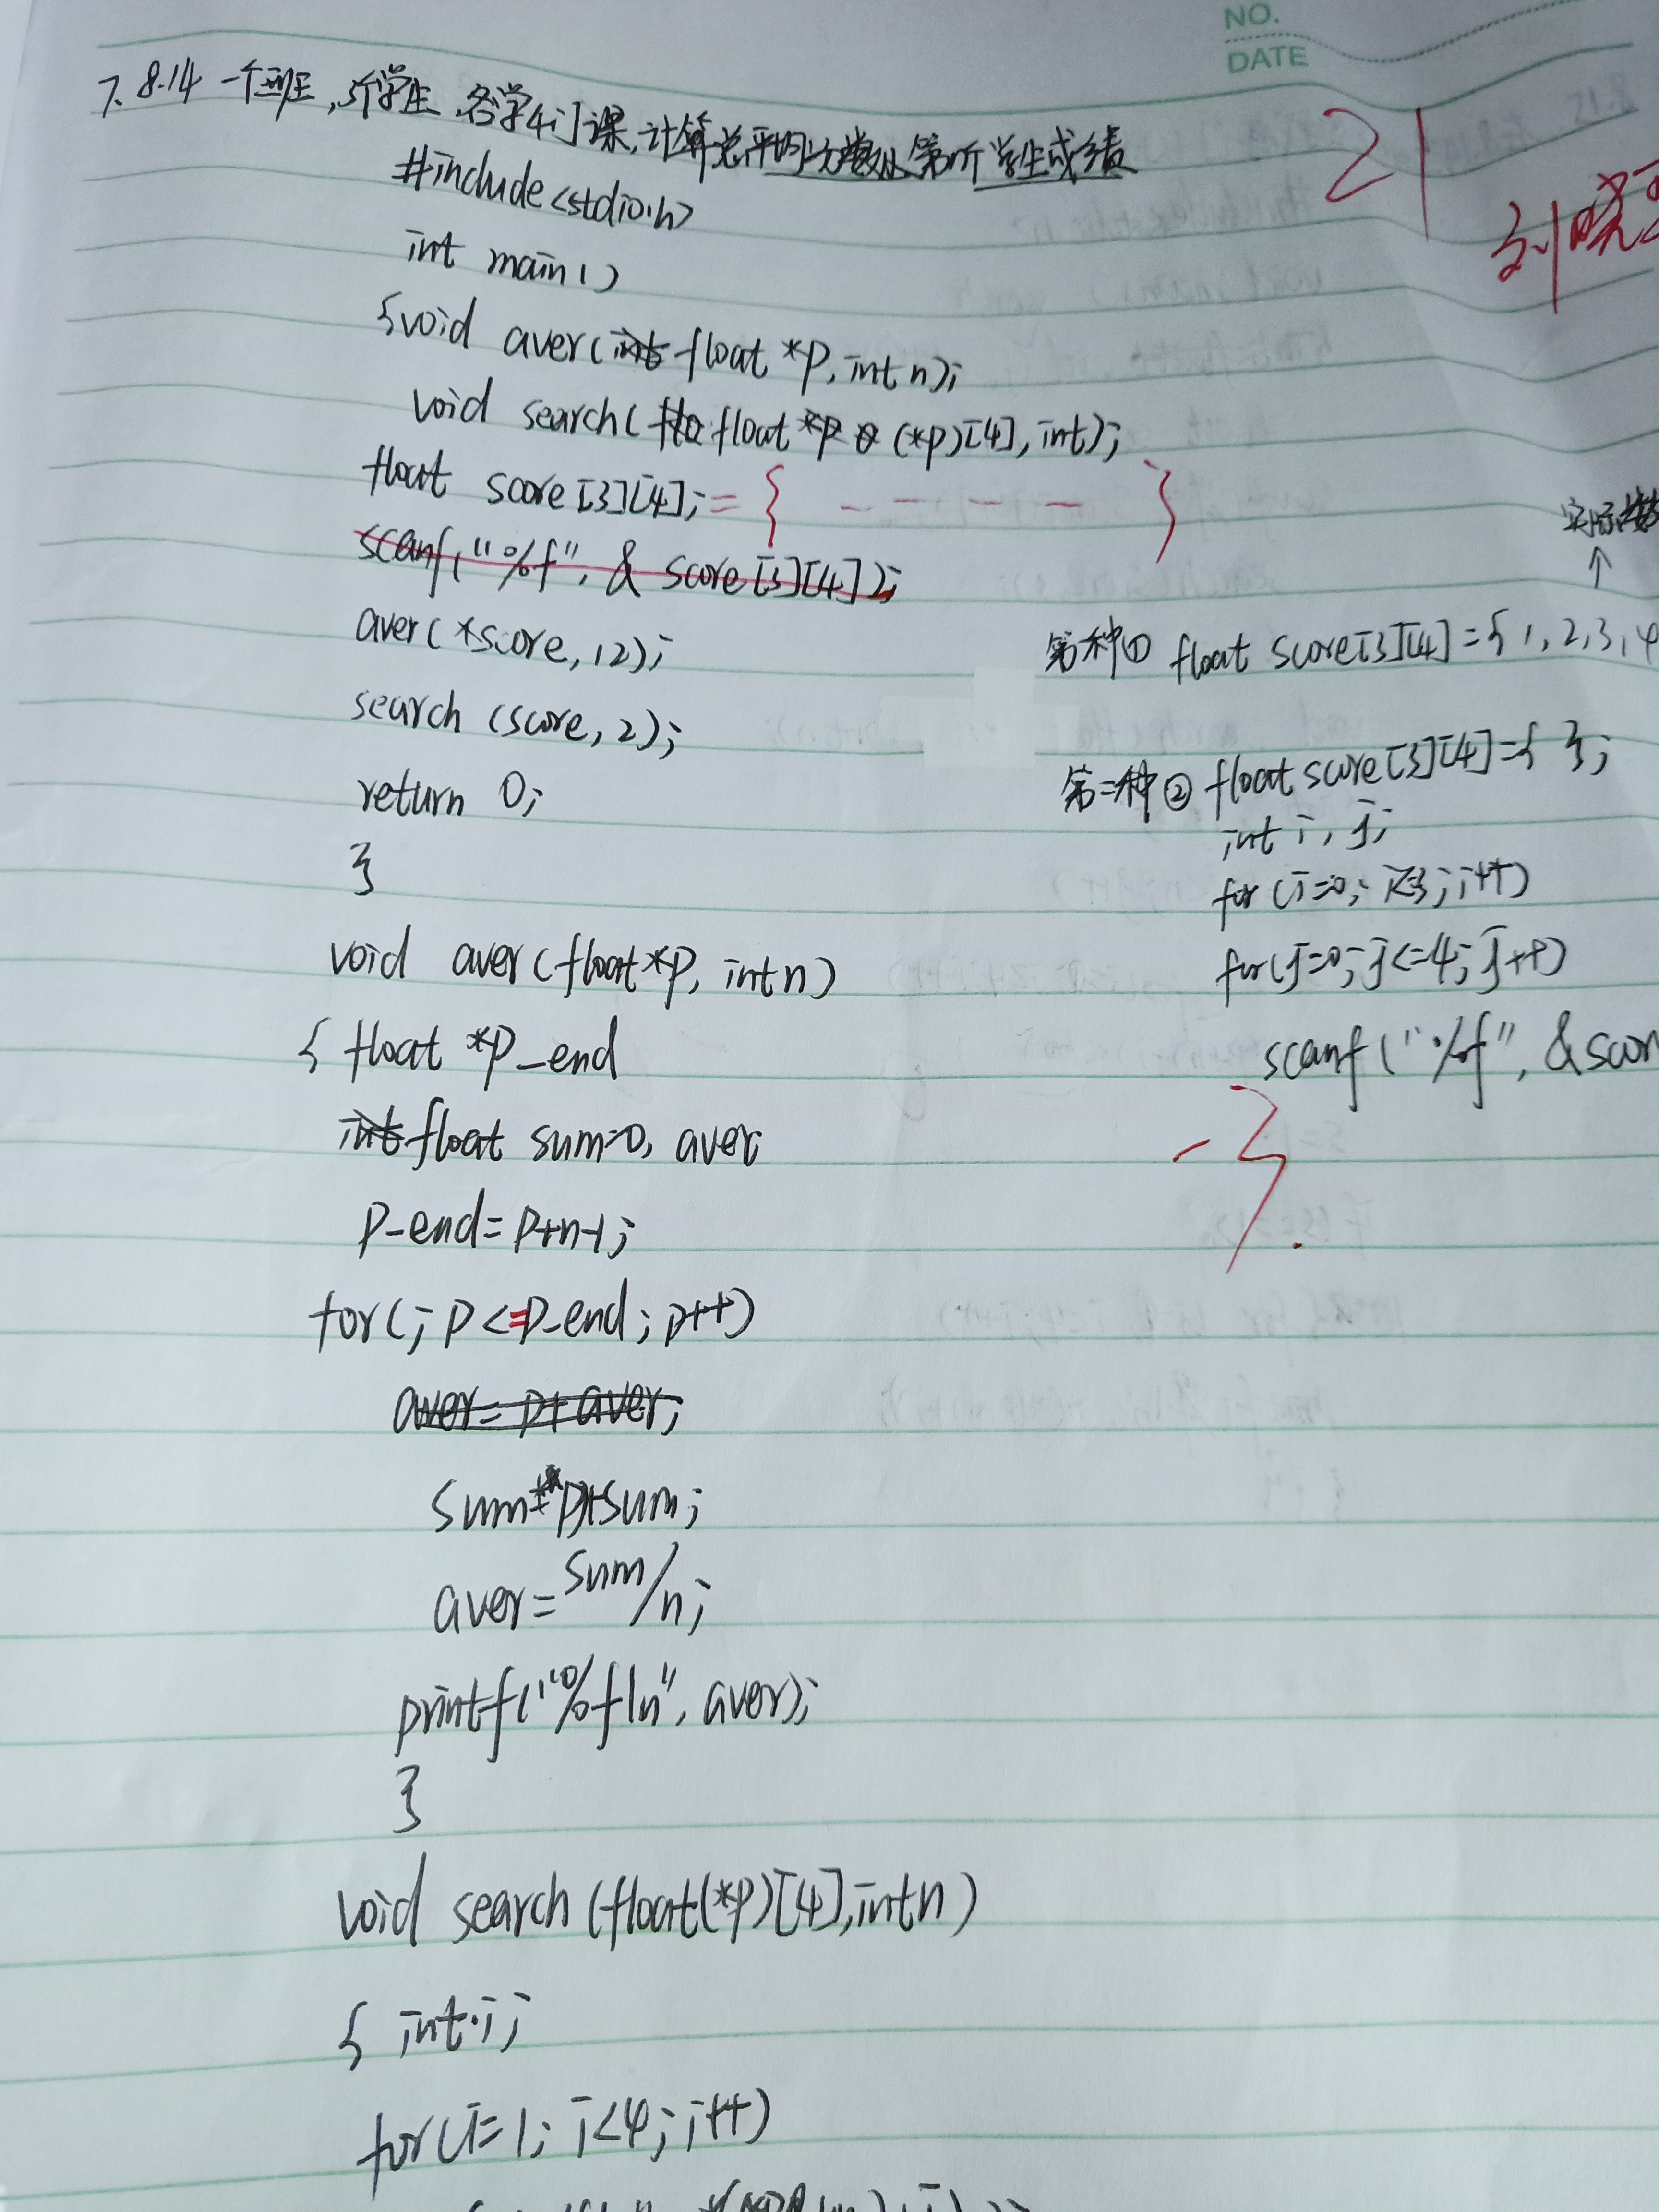 NO.
DATE
7. 8.14 一个班,3个学生,各学4门课,计算总平均分数以第n个学生成绩
21
刘晓
#include<stdio.h>
int main()
{void aver(float *p, int n);
void search(float (*p)[4], int);
float score[3][4]; = { - - - - }
scanf("%f", & score[3][4]);
aver(*score, 12);
search (score, 2);
return 0;
}
实际
↑
第一种① float score[3][4]={1, 2, 3, 4
第二种② float score[3][4]={ };
int i, j;
for (i=0; i<=3; i++)
for(j=0; j<=4; j++)
scanf("%f", &scor
-3.
void aver(float*p, int n)
{ float *p_end
float sum=0, aver
p-end=p+n-1;
for(; p<=p-end; p++)
aver=p+aver;
sum=*p+sum;
aver=sum/n;
printf("%f\n", aver);
}
void search (float(*p)[4], int n)
{ int i;
for(i=1; i<4; i++)